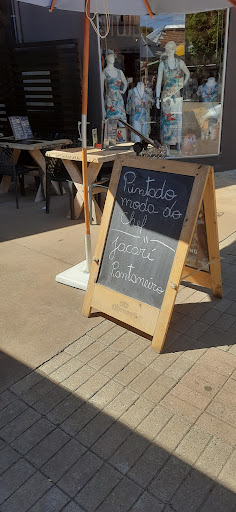 Pintado
moda do
chef
jacaré
Pantaneiro